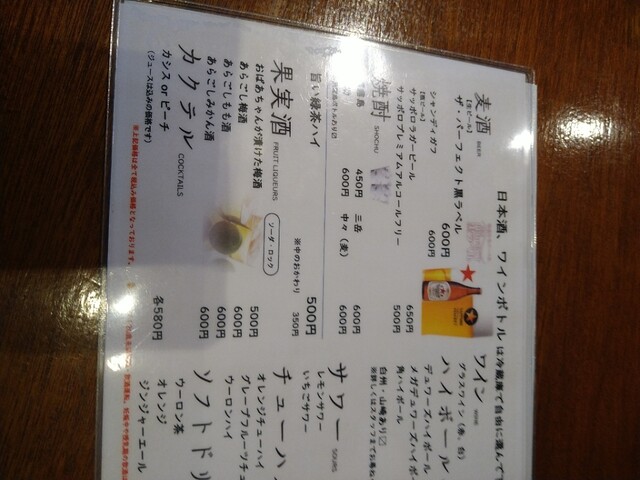 日本酒、ワインボトルは冷蔵庫で自由に選んで
麦酒 BEER
【生ビール】
ザ・パーフェクト黒ラベル 600円
シャンディガフ 600円
【瓶ビール】
サッポロラガービール 650円
サッポロプレミアムアルコールフリー 500円
焼酎 SHOCHU
450円 三岳 600円
600円 中々(麦) 600円
旨い緑茶ハイ 500円
※中のおかわり 350円
果実酒 FRUIT LIQUEURS
ソーダ・ロック
おばあちゃんが漬けた梅酒 500円
あらごし梅酒 600円
あらごしもも酒 600円
あらごしみかん酒 600円
カクテル COCKTAILS
カシス or ピーチ 各580円
(ジュースは込みの価格です)
※上記価格は全て税込み価格となっております。
ワイン WINE
グラスワイン(赤、白)
ハイボール
デュワーズハイボール
メガデュワーズハイボ
角ハイボール
白州・山崎あり〼
※詳しくはスタッフまでお尋ね
サワー SOURS
レモンサワー
いちごサワー
チューハ
オレンジチューハイ
グレープフルーツチュ
ウーロンハイ
ソフトドリ
ウーロン茶
オレンジ
ジンジャーエール